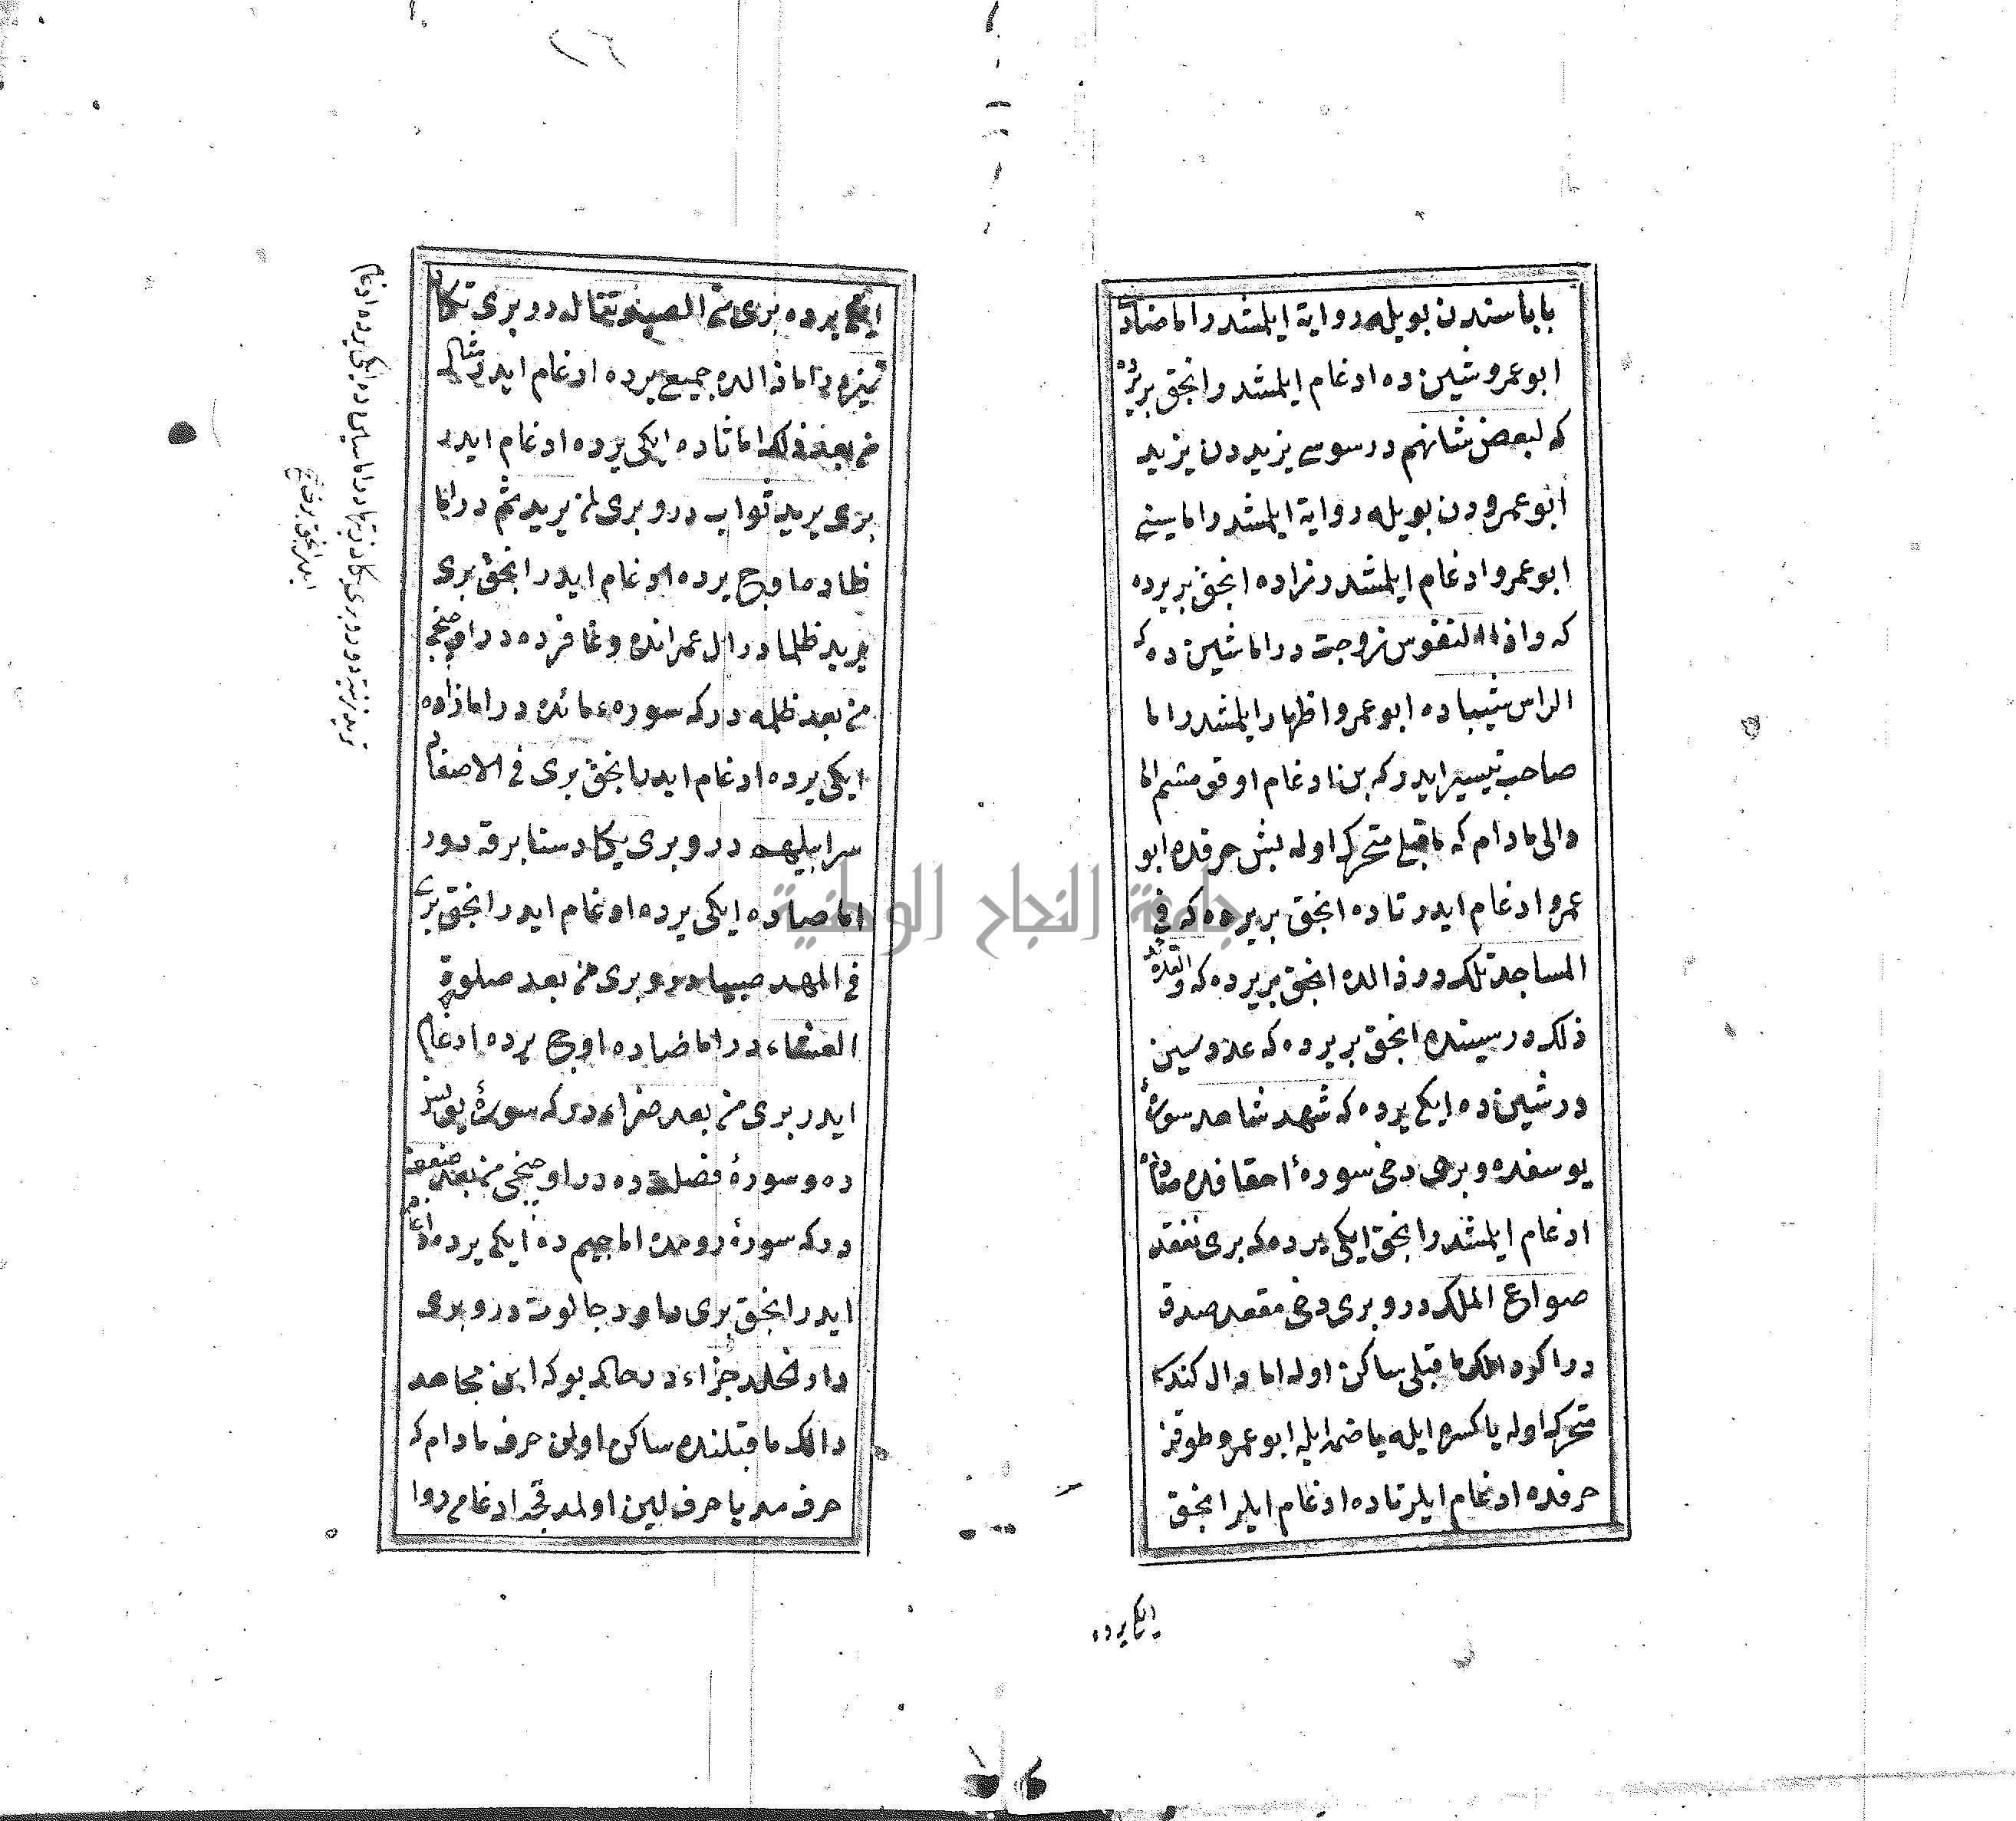 ٢٦
باباسندن بويله رواية ايلمشدر اما ضادى
ابو عمرو شين ده ادغام ايلمشدر انجق بر يرده
كه لبعض شانهم در سوسى يزيد دن يزيد
ابو عمرو دن بويله رواية ايلمشدر اما سينى
ابو عمرو ادغام ايلمشدر زاده انجق بر يرده
كه واذا النفوس زوجت در اما شين ده كه
الراس شيبا ده ابو عمرو اظهار ايلمشدر اما
صاحب تيسير ايدر كه بن ادغام اوقومشم اما
دالى مادام كه ماقبلى متحرك اوله بش حرفده ابو
عمرو ادغام ايدر تاده انجق بر يرده كه فى
المساجد تلك در ذالده انجق بر يرده كه والقلائد
ذلك در سينده انجق بر يرده كه عدد سنين
در شين ده ايكى يرده كه شهد شاهد سورهٔ
يوسفده وبرى دخى سورهٔ احقافده صاده
ادغام ايلمشدر انجق ايكى يرده كه برى نفقد
صواع الملك در وبرى دخى مقعد صدق
در اكر دالك ماقبلى ساكن اوله اما دال كندى
متحرك اوله يا كسره ايله يا ضمه ايله ابو عمرو طوقز
حرفده ادغام ايلر تاده ادغام ايلر انجق
ايكى يرده
ايكى يرده برى من الصيد تناله در برى تكاد
تميز در اما ذالده جميع يرده ادغام ايدر مثالى
من بعد ذلك اما ثاده ايكى يرده ادغام ايدر
برى يريد ثواب در وبرى لمن يريد ثم در اما
ظاده اوج يرده ادغام ايدر انجق برى
يريد ظلما در ال عمرانده وغافرده در اوچنجى
من بعد ظلمه در كه سوره مائده در اما زاده
ايكى يرده ادغام ايدر انجق برى فى الاصفاد
سرابيلهم در وبرى يكاد سنا برقه در
اما صاده ايكى يرده ادغام ايدر انجق برى
فى المهد صبيا در وبرى من بعد صلوة
العشاء در اما ضاده اوج يرده ادغام
ايدر برى من بعد ضراء در كه سورهٔ يونس
ده وسورهٔ فصلت ده در اوچنجى من بعد ضعف
در كه سورهٔ رومده اما جيم ده ايكى يرده ادغام
ايدر انجق برى داود جالوت در وبرى
دار الخلد جزاء در حال بو كه ابن مجاهد
دالك ماقبلنده ساكن اولن حرف مادام كه
حرف مد يا حرف لين اولمدقجه ادغامى روا
جامعة النجاح الوطنية